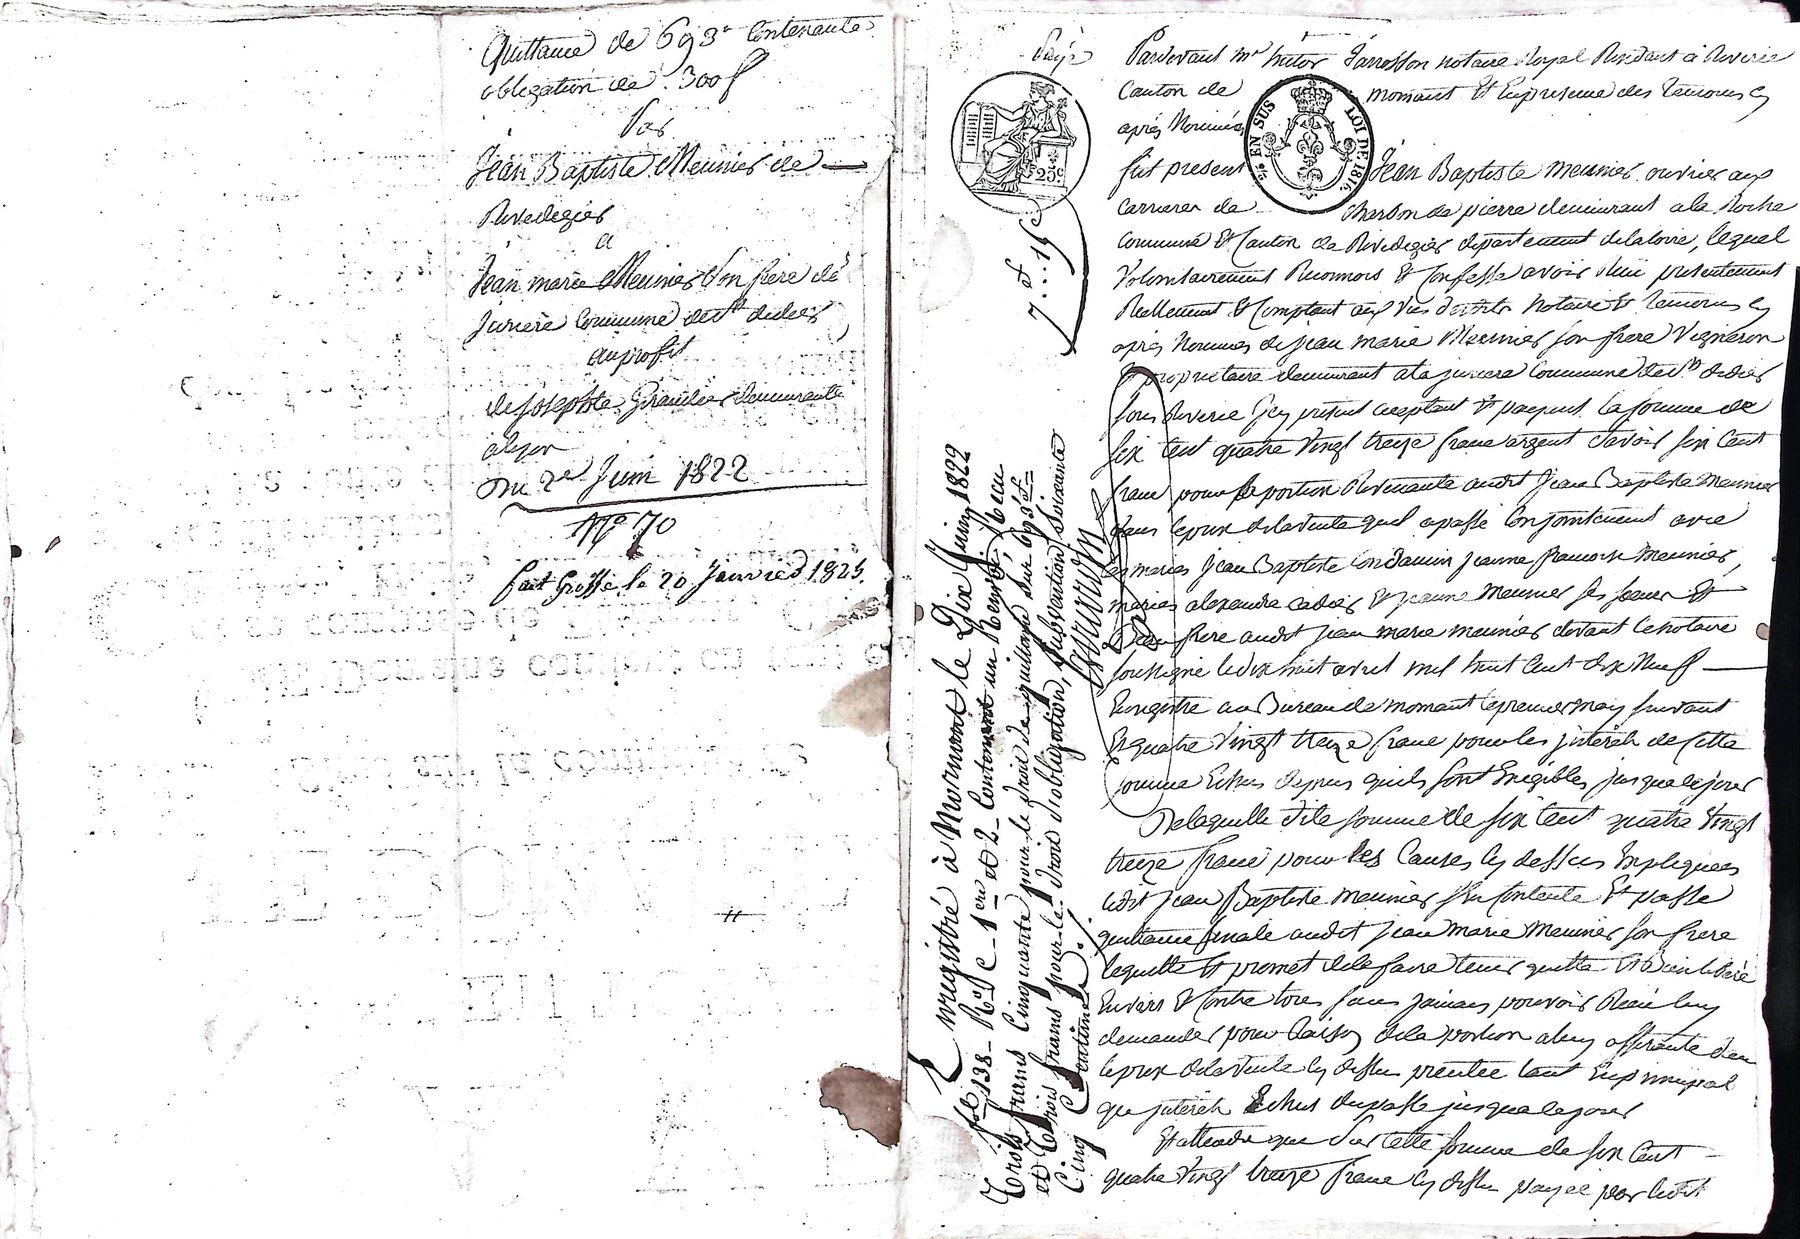 Quittance de 693f Contenante
obligation de 300f
Par
Jean Baptiste Meunier de
Rivedegier
a
Jean marie Meunier Son frere de
Juriere Commune de St didier
au profit
de Josephte Giraudier demeurante
alyon
Du 2e Juin 1822
N° 70
fait Grosse le 20 Janvier 1825.
Pardevant Me hector Jarrosson notaire Royal Residant à Riverie
Canton de mornant Et En presence des temoins cy
après Nommés
fut present Jean Baptiste Meunier ouvrier aux
carrieres de charbon de pierre demeurant a la Roche
Commune Et Canton de Rivedegier departement de la loire, lequel
Volontairement Reconnois Et Confesse avoir Reçu presentement
Reellement Et Comptant aux Vus desdits Notaire Et temoins cy
après Nommés de jean marie Meunier Son frere Vigneron
Et proprietaire demeurant a la juriere Commune de St didier
sous Riverie Icy présent acceptant Et payant la somme de
six Cent quatre Vingt treize franc argent Savoir six Cent
franc pour sa portion Revenante audit Jean Baptiste Meunier
dans le prix de la vente quil a passé Conjointement avec
les maries Jean Baptiste Condamin Jeanne francoise Meunier,
maries alexandre cadier Et jeanne Meunier ses soeurs Et
Beau frere audit jean marie meunier devant le Notaire
soussigné le dix huit avril mil huit Cent dix Neuf
Enregistre au Bureau de mornant le premier may suivant
Et quatre Vingt treize franc pour les jnterets de Cette
somme Echus depuis quils sont Exigibles jusqua le jour
De laquelle dite somme de six Cent quatre Vingt
treize franc pour les Causes cy dessus Expliquees
ledit jean Baptiste meunier s'en Contente Et passe
quittance finale audit jean marie Meunier Son frere
lequitte Et promet de le faire tenir quitte Et Bien libéré
Envers Et Contre tous sans jamais pouvoir Rien luy
demander pour Raison de la portion a luy afferante dans
le prix de la vente cy dessus Enoncée tant En principal
que jnterets Echus du passé jusqua le jour
Et attendu que Sur Cette somme de six Cent
quatre Vingt treize franc cy dessus payee par ledit
25c
EN SUS
LOI DE 1816
Enregistré à Mornant le Dix Juin 1822
fo 138 Ro C 1ere et 2 Contenant un Renvoi, Recu
Trois francs Cinquante pour le droit de quittance sur 693f
et Trois francs pour le Droit d'obligation, Subvention Soixante
Cinq Centimes.